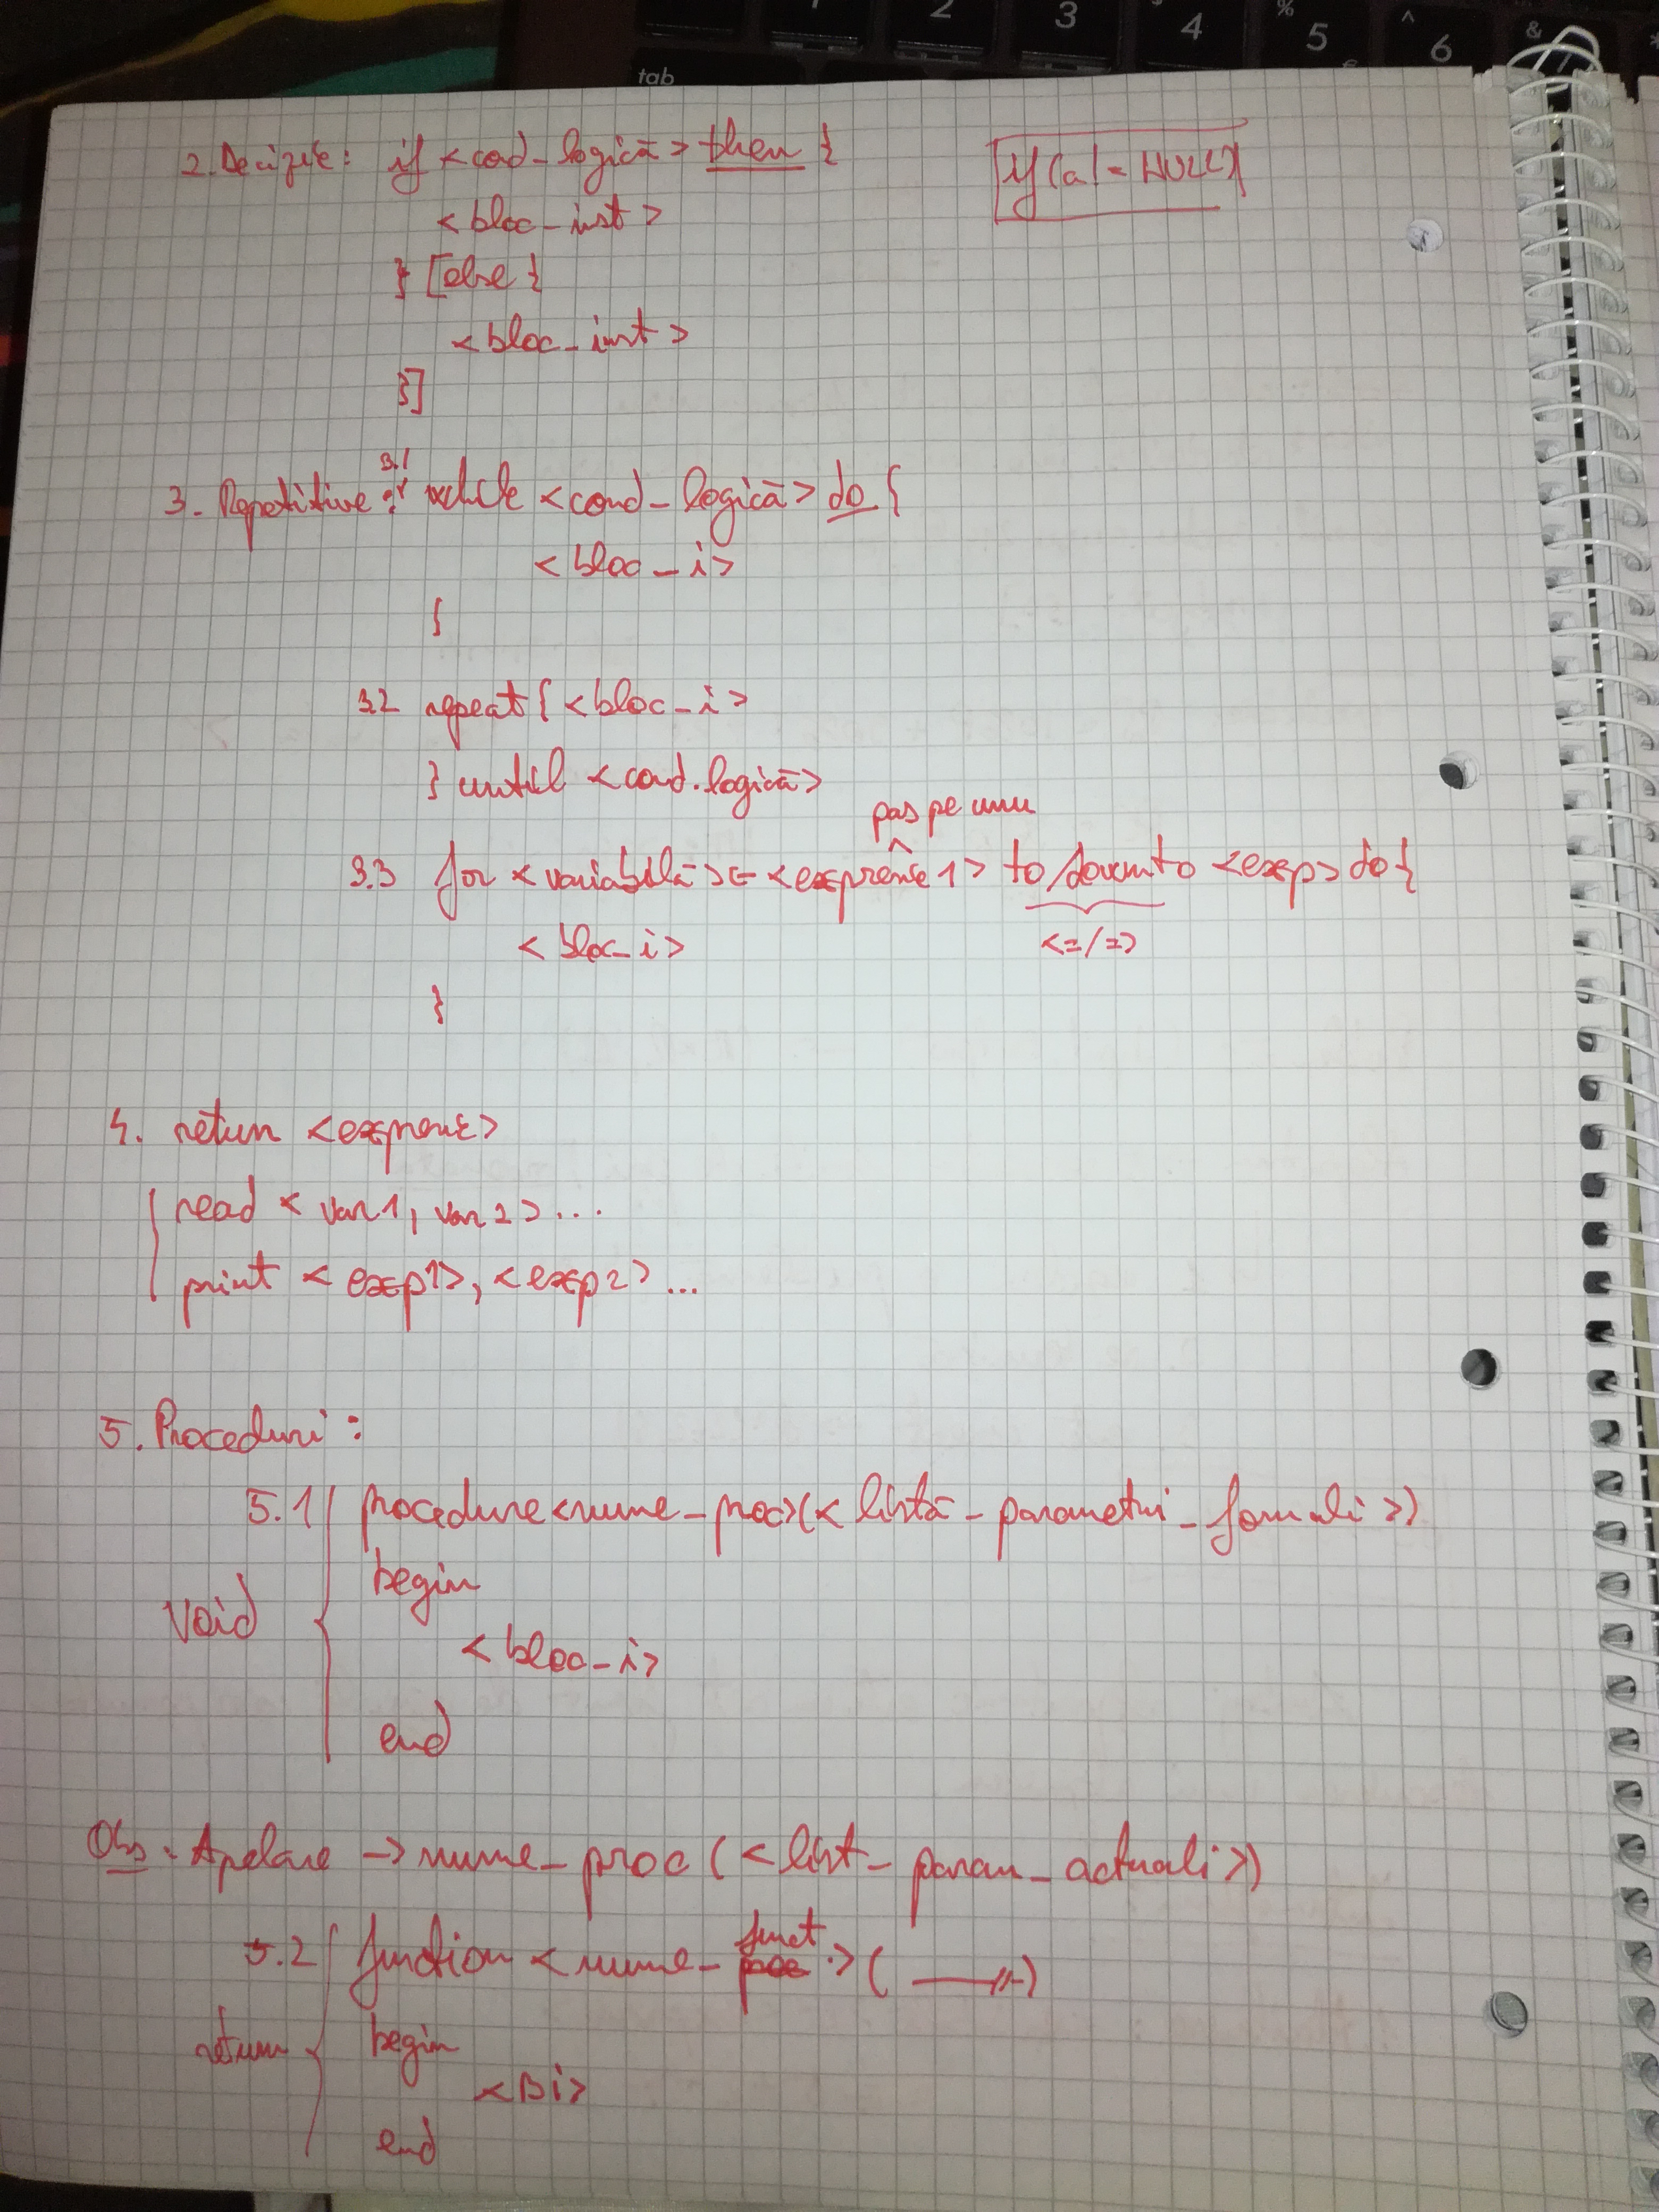 tab
1 2 3 4 % 5 ^ 6 &
2. Decizie: if <cond_logică> then {
if(a!=NULL)
<bloc_inst>
} [else {
<bloc_inst>
}]
3.1
3. Repetitive: while <cond_logică> do {
<bloc_i>
}
3.2 repeat { <bloc_i>
} until <cond.logică>
pas pe unu
3.3 for <variabilă> = <expresie 1> to/downto <exp> do {
<=/=>
<bloc_i>
}
4. return <expresie>
read <var1, var2> ...
print <exp1>, <exp2> ...
5. Proceduri:
5.1 procedure <nume_proc>(<listă_parametri_formali>)
begin
void
<bloc_i>
end
Obs: Apelare -> nume_proc (<list_param_actuali>)
funct
5.2 function <nume_proc>( —//—)
return begin
<Bi>
end